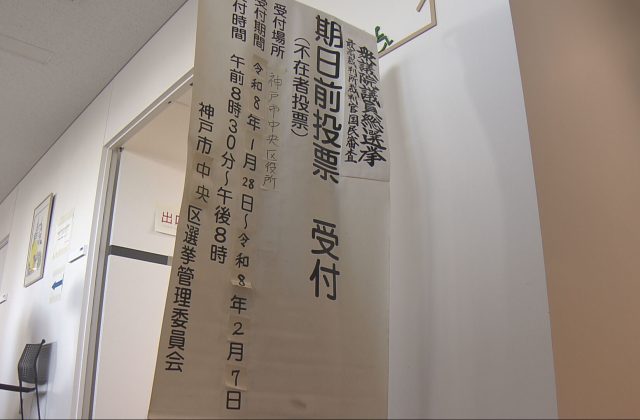 衆議院議員総選挙
最高裁判所裁判官国民審査
期日前投票 受付
(不在者投票)
受付場所 神戸市中央区役所
受付期間 令和8年1月28日～令和8年2月7日
付時間 午前8時30分～午後8時
神戸市中央区選挙管理委員会
出口